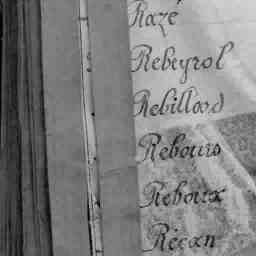 Razé
Rebeyrol
Rebillard
Rebours
Reboux
Récan